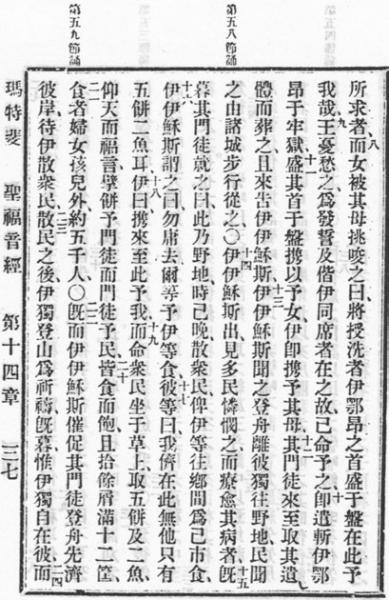 第五八節誦
第五九節誦
所求者八而女被其母挑唆之曰將授洗者伊鄂昂之首盛于盤在此予
我哉九王憂愁之爲發誓及偕伊同席者在之故己命予之十卽遣斬伊鄂
昂于牢獄十一盛其首于盤攜以予女伊卽攜予其母十二其門徒來至取其遺
體而葬之且來告伊伊穌斯十三伊伊穌斯聞之登舟離彼獨往野地民聞
之由諸城步行從之〇十四伊伊穌斯出見多民憐憫之而療愈其病者十五旣
暮其門徒就之曰此乃野地時已晚散衆民俾伊等往鄉間爲己市食
十六伊伊穌斯謂之曰勿庸去爾等予伊等食十七彼等曰我儕在此無他只有
五餅二魚耳十八伊曰攜來至此予我十九而命衆民坐于草上取五餅及二魚
仰天而福言擘餅予門徒而門徒予民二十皆食而飽且拾餘屑滿十二筐
二一食者婦女孩兒外約五千人〇二二旣而伊伊穌斯催促其門徒登舟先濟
彼岸待伊散衆民二三散民之後伊獨登山爲祈禱旣暮惟伊獨自在彼二四而
瑪特斐 聖福音經 第十四章 三七